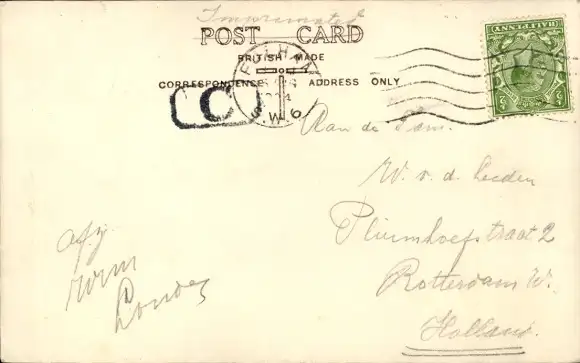 Imprimated
POST CARD
BRITISH MADE
CORRESPONDENCE ADDRESS ONLY
FULHAM
S.W.6
C
HALFPENNY
Aan de Fam.
W. v. d. Leeden
Pluimhoefstraat 2
Rotterdam W.
Holland
afz.
Wim
Londen